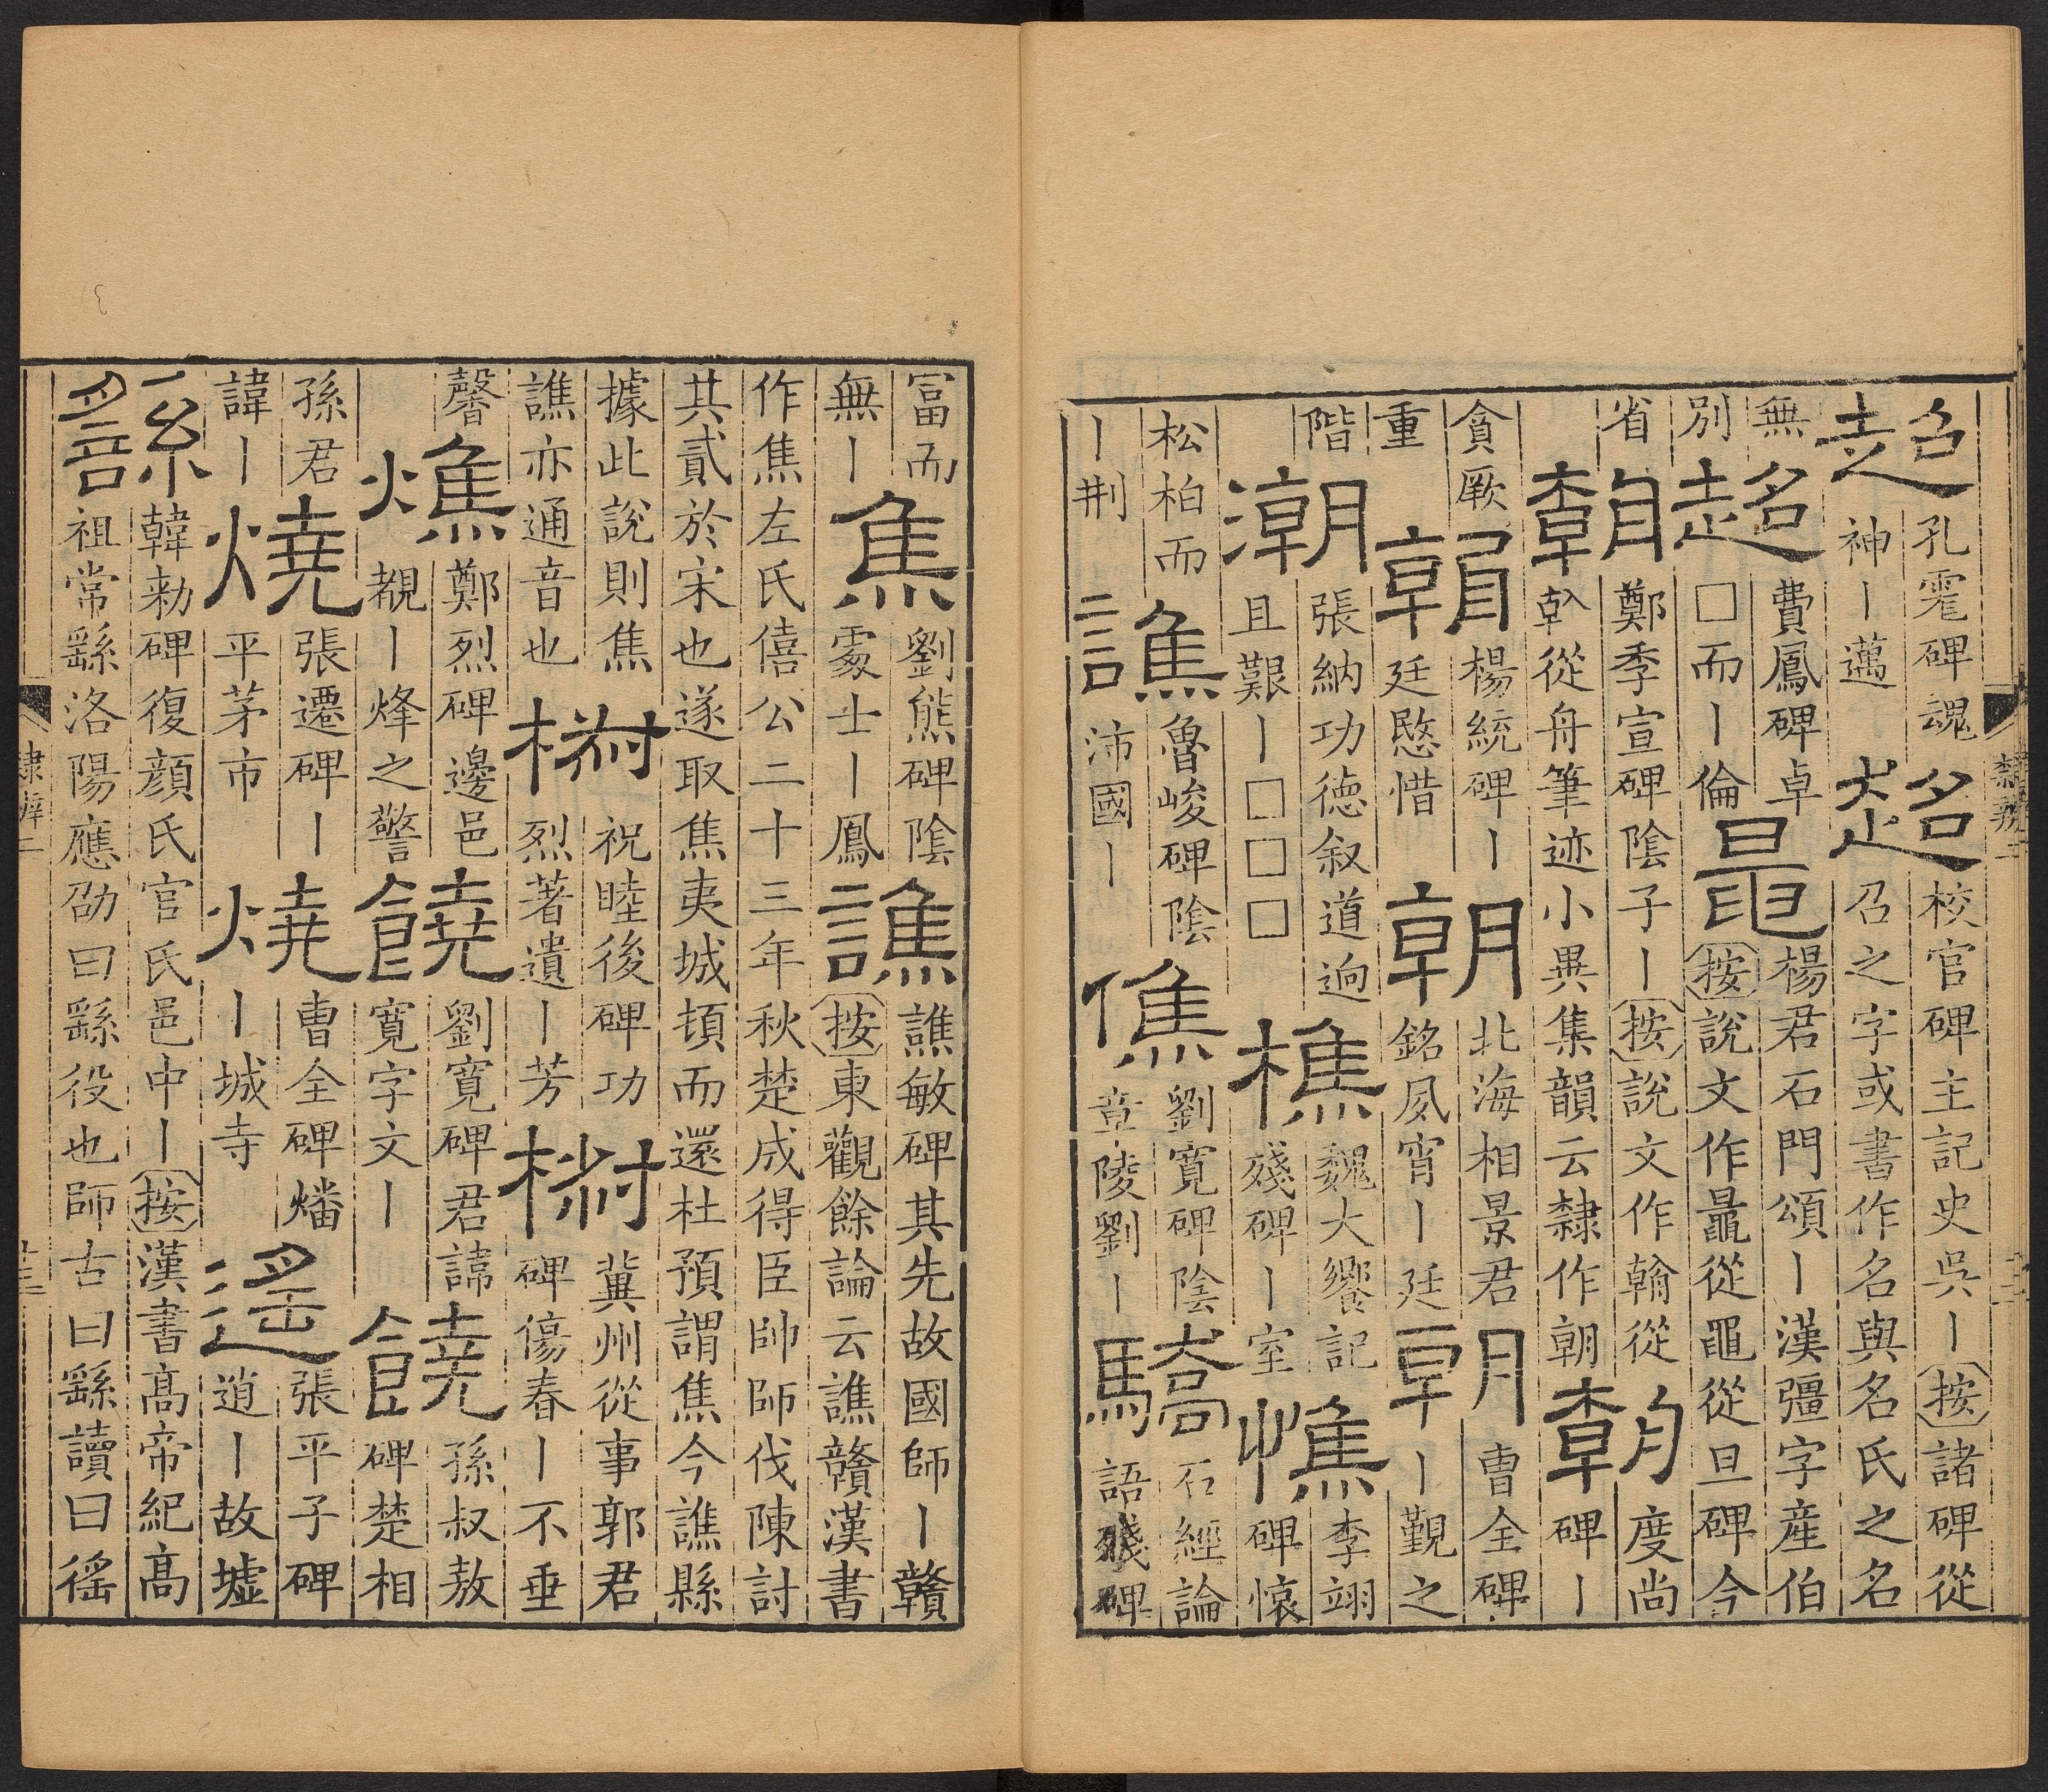 超孔碑魂神丨邁超校官碑主記史吳丨按諸碑從召之字或書作名與名氏之名
無別超費鳳碑卓□而丨倫鼂楊君石門頌丨漢彊字產伯按說文作鼂從黽從旦碑今
省朝鄭季宣碑陰子丨按說文作翰從倝從舟筆迹小異集韻云隸作朝朝度尚碑丨
貪厥重朝楊統碑丨廷愍惜朝北海相景君銘夙宵丨廷朝曹全碑丨覲之
階潮張納功德叙道逈且艱丨□□□樵魏大饗記殘碑丨室憔李翊碑懷
松柏而丨荆譙魯峻碑陰沛國丨僬劉寬碑陰章陵劉丨驕石經論語殘碑
富而無丨焦劉熊碑陰處士丨鳳譙譙敏碑其先故國師丨贛按東觀餘論云譙贛漢書
作焦左氏僖公二十三年秋楚成得臣帥師伐陳討其貳於宋也遂取焦夷城頓而還杜預謂焦今譙縣
據此說則焦譙亦通音也椒祝睦後碑功烈著遺丨芳椒冀州從事郭君碑傷春丨不垂
馨燋鄭烈碑邊邑覩丨烽之警饒劉寬碑君諱寬字文丨饒孫叔敖碑楚相
孫君諱丨燒張遷碑丨平茅市燒曹全碑燔丨城寺遙張平子碑逍丨故墟
繇韓勑碑復顏氏官氏邑中丨按漢書高帝紀高祖常繇洛陽應劭曰繇役也師古曰繇讀曰徭
隸辨二